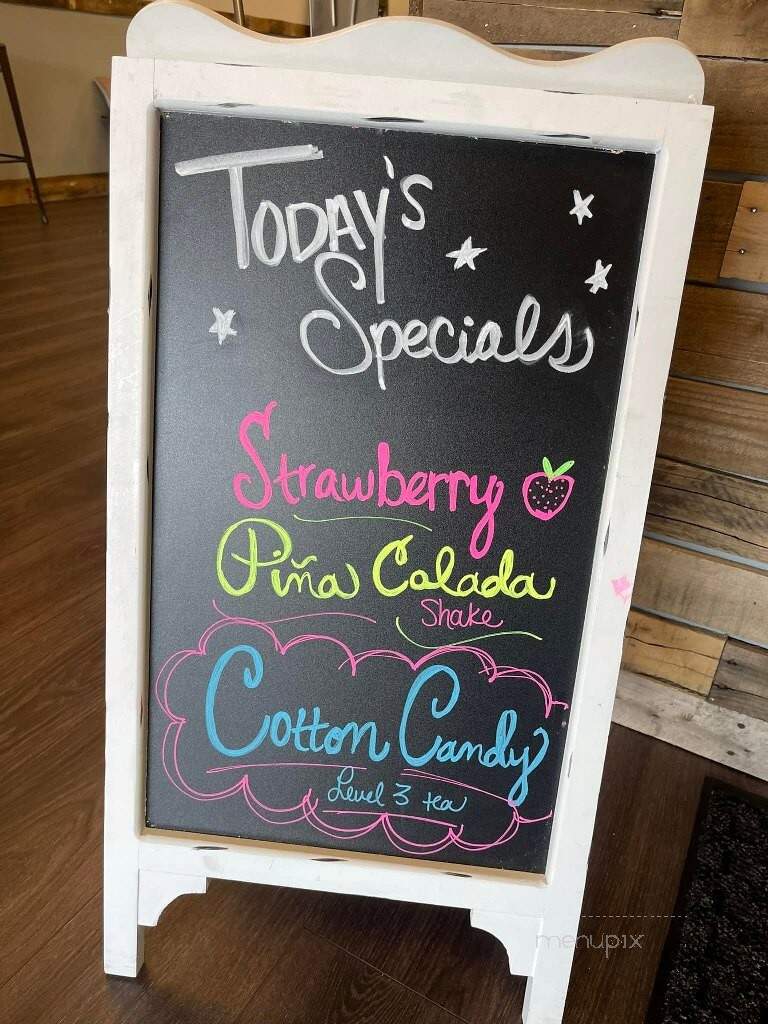 Today's
Specials
Strawberry
Piña Colada
Shake
Cotton Candy
Level 3 tea
menupix